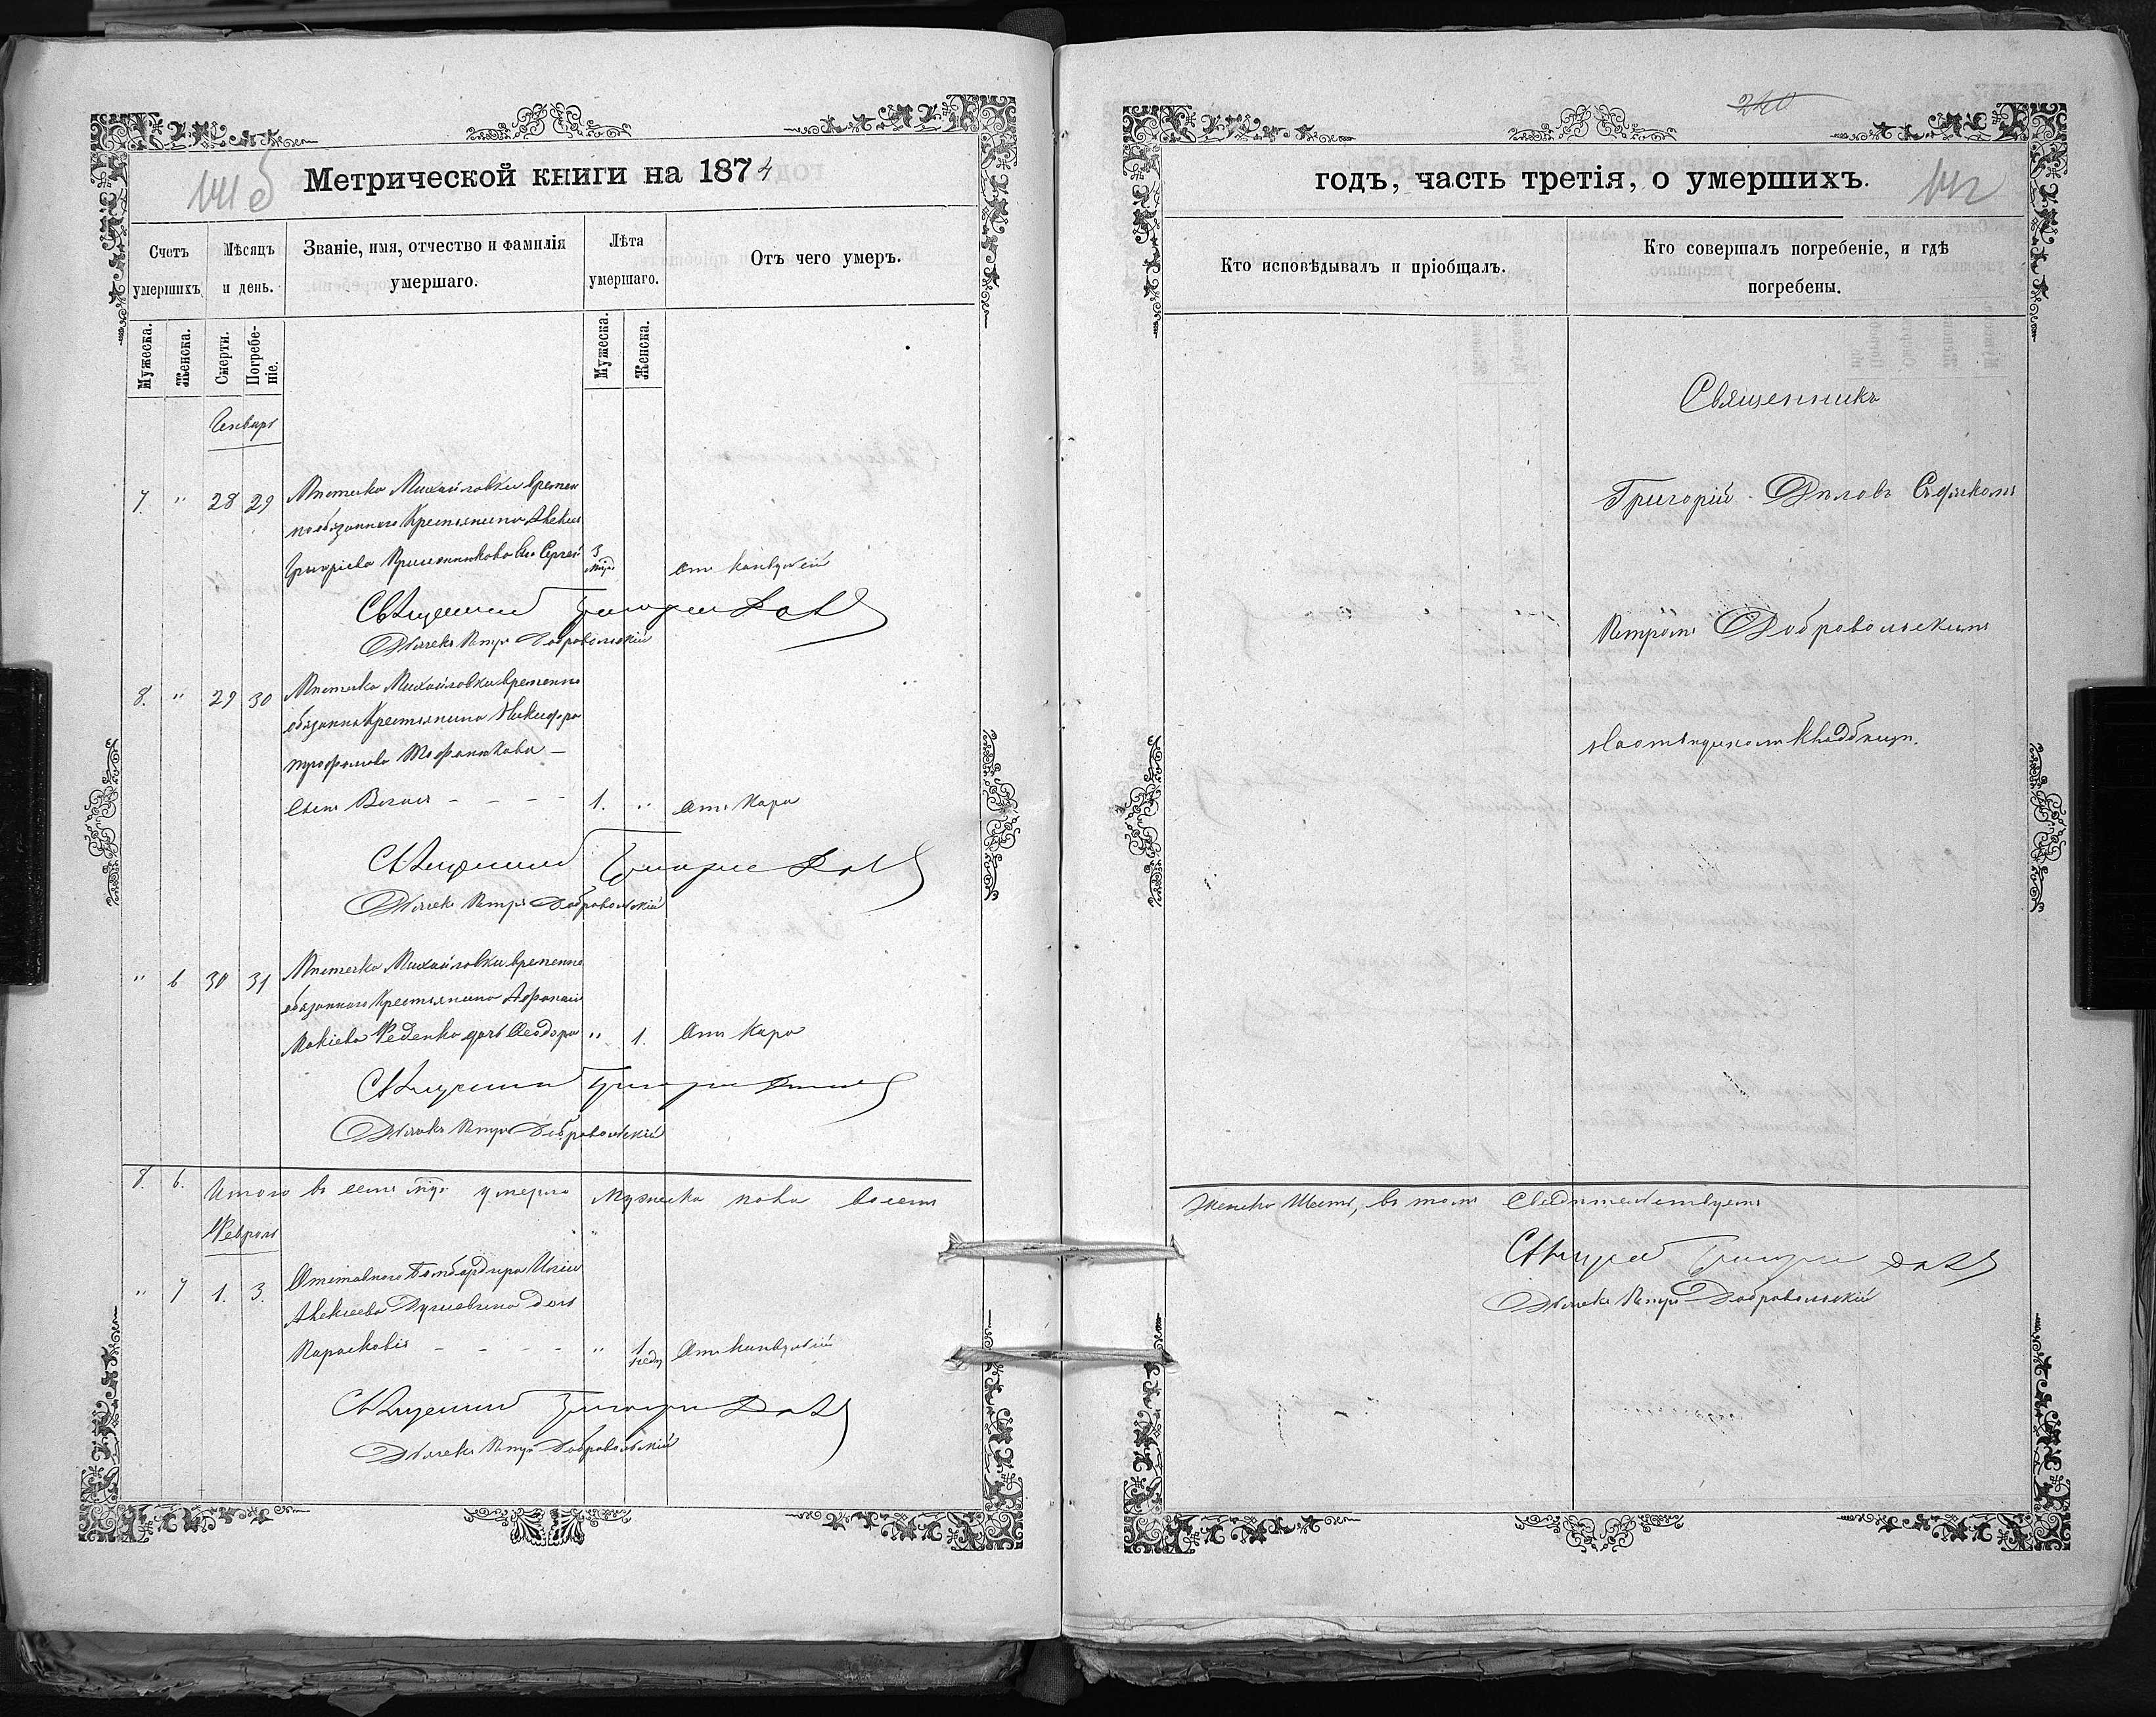 141 б
Метрической книги на 1874
Счетъ умершихъ
Мѣсяцъ и день.
Званіе, имя, отчество и фамилія умершаго.
Лѣта умершаго.
Отъ чего умеръ.
Мужеска. Женска. Смерти. Погребеніе. Мужеска. Женска.
Генварь
7. " 28 29 Мѣстечка Михайловки времен
нообязаннаго Крестьянина Алексѣя
Григоріева сынъ Сергѣй 3 отъ конвульсій
Священникъ Григорій
Дьячекъ Петръ Добровольскій
8. " 29 30 Мѣстечка Михайловки временно
обязанна Крестьянина Никифора
Трофимова
сынъ - - - - 1. " отъ Кора
Священникъ Григорій
Дьячекъ Петръ Добровольскій
" 6 30 31 Мѣстечка Михайловки временно
обязаннаго Крестьянина Афанасія
Мокіева Феденко дочь Ѳеодора " 1. отъ Кора
Священникъ Григорій
Дьячекъ Петръ Добровольскій
8. 6. Итого въ семъ умерло Мужеска пола восемь
Февраль
" 7 1. 3. Отставного Бомбардира
Алексеева дочь
Парасковія - - - - " 1 нед отъ конвульсій
Священникъ Григорій
Дьячекъ Петръ Добровольскій
240
142
годъ, часть третія, о умершихъ.
Кто исповѣдывалъ и пріобщалъ.
Кто совершалъ погребеніе, и гдѣ погребены.
Священникъ
Григорій съ дьячкомъ
Петромъ Добровольскимъ
кладбищѣ.
Женска Шесть, въ томъ Свидѣтельствуемъ
Священникъ Григорій
Дьячекъ Петръ Добровольскій